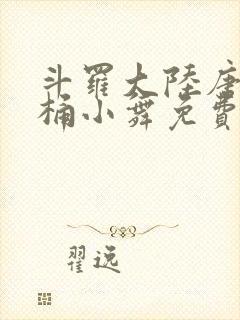 斗羅大陸唐
桶小舞免費
翟逸